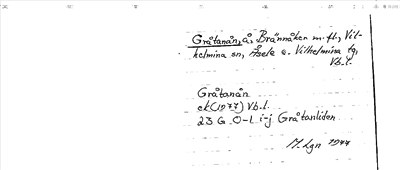 Gråtanån, å, Brännåker m.fl, Vil-
helmina sn, Åsele o. Vilhelmina tg,
Vb.l.
Gråtanån
ek (1977) Vb.l.
23 G 0-1 i-j Gråtanliden
M. Lgn 1977